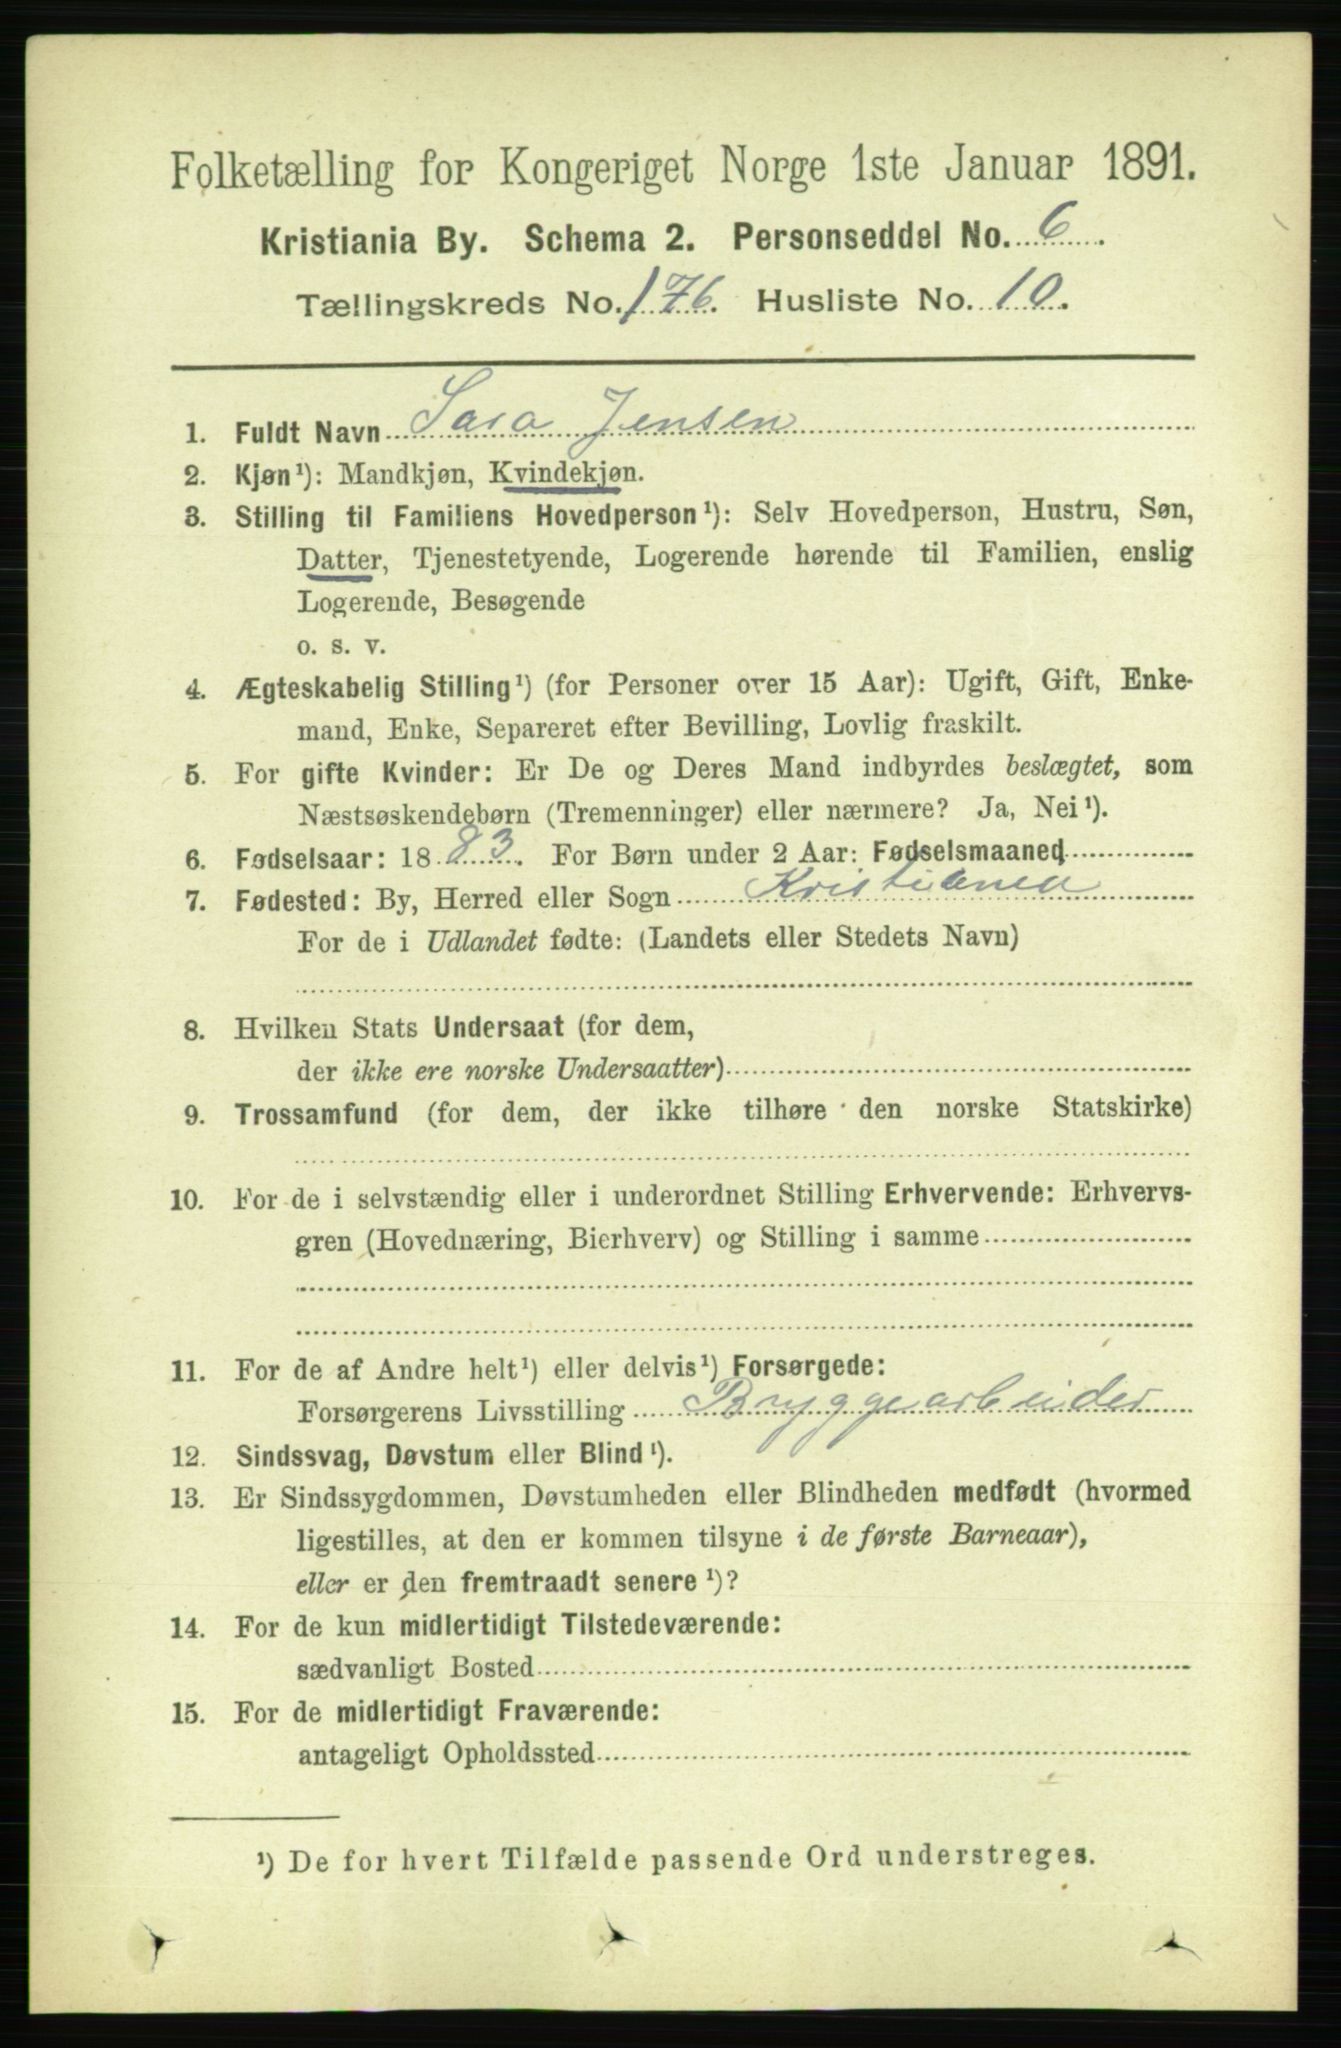 Folketælling for Kongeriget Norge 1ste Januar 1891.
Kristiania By. Schema 2. Personseddel No. 6.
Tællingskreds No. 176. Husliste No. 10.
1. Fuldt Navn Sara Jensen
2. Kjøn¹): Mandkjøn, Kvindekjøn.
3. Stilling til Familiens Hovedperson¹): Selv Hovedperson, Hustru, Søn,
Datter, Tjenestetyende, Logerende hørende til Familien, enslig
Logerende, Besøgende
o. s. v.
4. Ægteskabelig Stilling¹) (for Personer over 15 Aar): Ugift, Gift, Enke-
mand, Enke, Separeret efter Bevilling, Lovlig fraskilt.
5. For gifte Kvinder: Er De og Deres Mand indbyrdes beslægtet, som
Næstsøskendebørn (Tremenninger) eller nærmere? Ja, Nei¹).
6. Fødselsaar: 1883. For Børn under 2 Aar: Fødselsmaaned
7. Fødested: By, Herred eller Sogn Kristiania
For de i Udlandet fødte: (Landets eller Stedets Navn)
8. Hvilken Stats Undersaat (for dem,
der ikke ere norske Undersaatter)
9. Trossamfund (for dem, der ikke tilhøre den norske Statskirke)
10. For de i selvstændig eller i underordnet Stilling Erhvervende: Erhvervs-
gren (Hovednæring, Bierhverv) og Stilling i samme
11. For de af Andre helt¹) eller delvis¹) Forsørgede:
Forsørgerens Livsstilling Bryggearbeider
12. Sindssvag, Døvstum eller Blind¹).
13. Er Sindssygdommen, Døvstumheden eller Blindheden medfødt (hvormed
ligestilles, at den er kommen tilsyne i de første Barneaar),
eller er den fremtraadt senere¹)?
14. For de kun midlertidigt Tilstedeværende:
sædvanligt Bosted
15. For de midlertidigt Fraværende:
antageligt Opholdssted
¹) De for hvert Tilfælde passende Ord understreges.